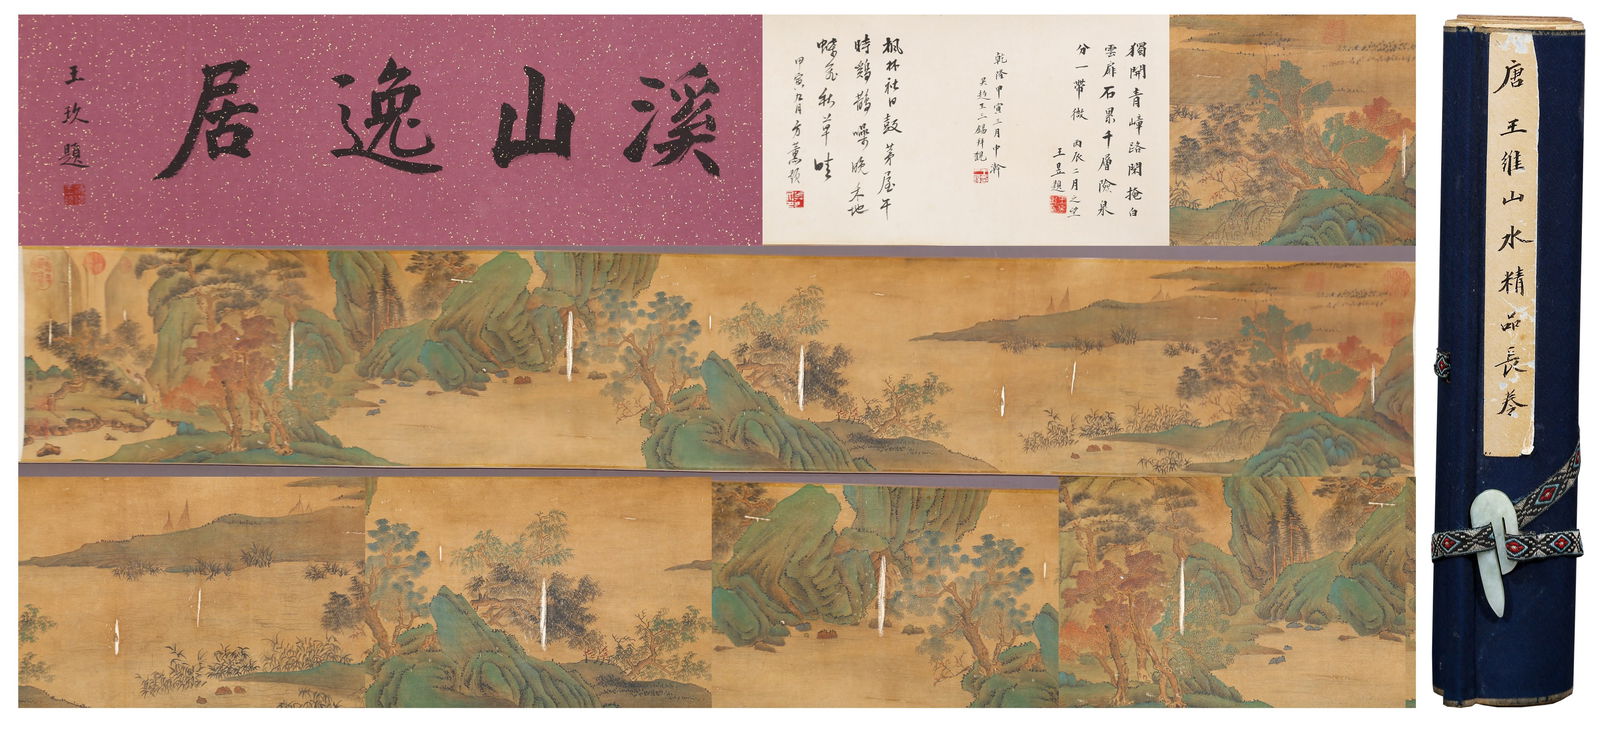 溪山逸居
王玖題
獨開青嶂路閑掩白
雲扉石累千層險泉
分一帶微 丙辰二月之望
王昱題
乾隆甲寅三月中澣
吳趨王三錫拜觀
楓林社日鼓茅屋午
時鷄鵲噪晚禾地
蝶飛秋草畦
甲寅九月方薰題
唐王維山水精品長卷